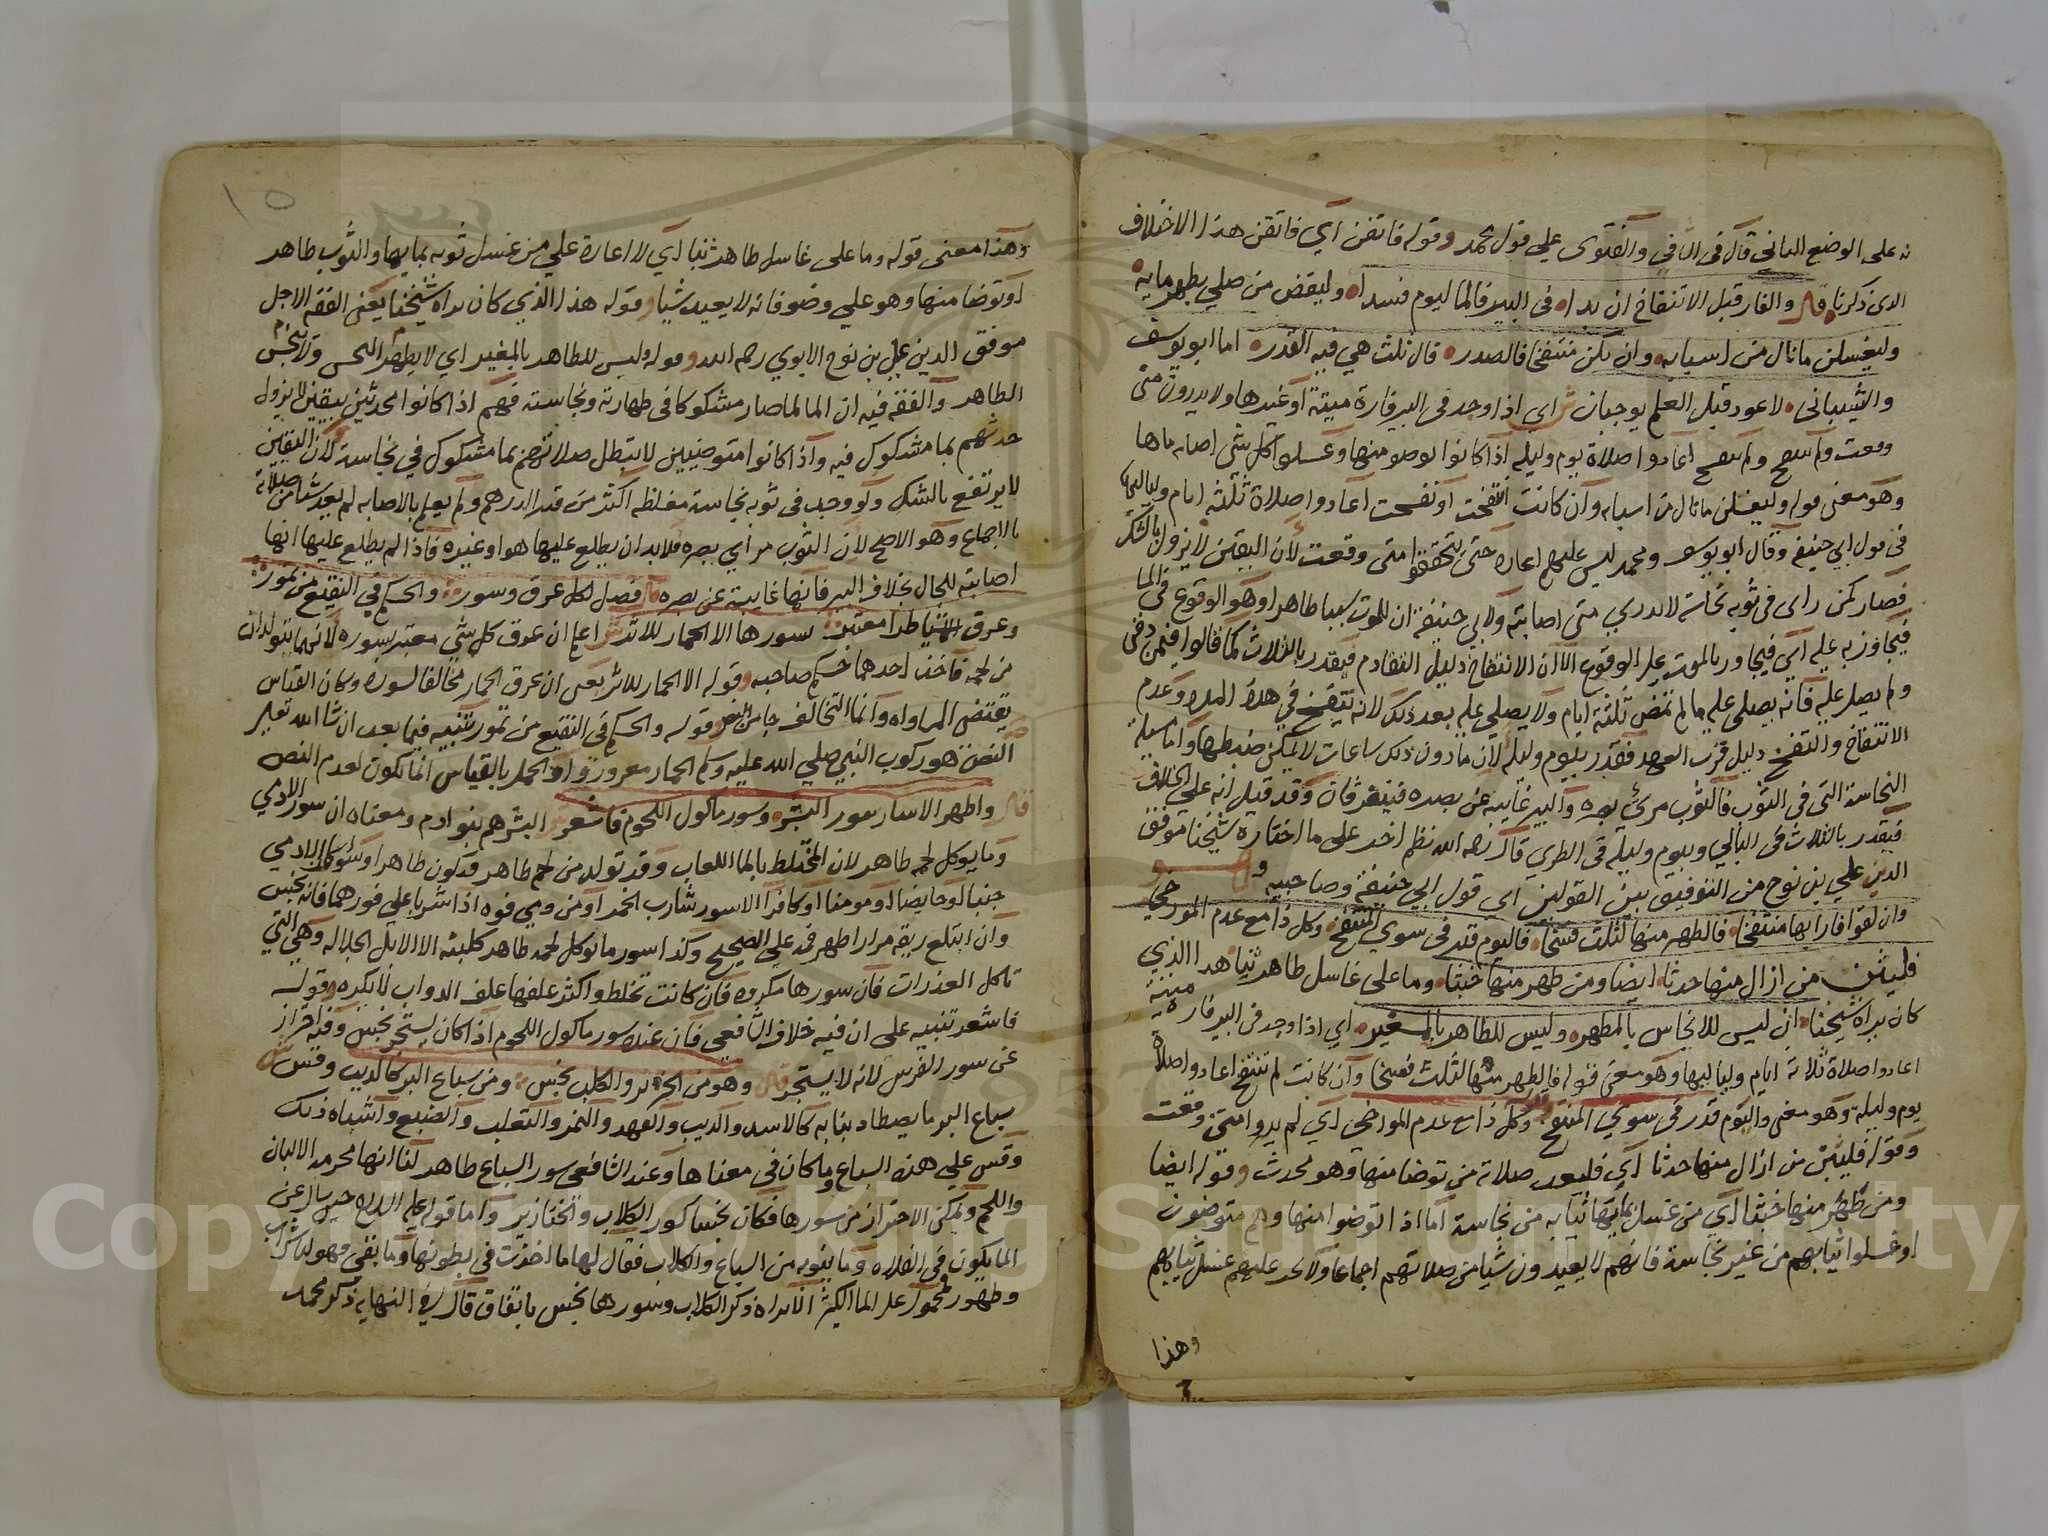 نه على الوضع الثاني قال في الكافي والفتوى على قول محمد وقوله فاتقن اي فاتقن هذا الاختلاف
الذي ذكرنا قال والفار قبل الانتفاخ ان بداه في البير فالما ليوم فسدا وليقض من صلى بطهر مايه
وليغسلن ما نال من اسبابه وان يكن منتفخا فالصدره قال ثلث هي فيه القدره اما ابو يوسف
والشيباني لا عود قبل العلم يوجبان ش اي اذا وجد في البير فارة ميتة او غيرها ولا يدرون متى
وقعت ولم تنتفخ ولم تتفسخ اعادوا صلاة يوم وليلة اذا كانوا توضوا منها وغسلوا كل شي اصابه ماها
وهو معنى قوله وليغسلن ما نال من اسبابه وان كانت انتفخت او تفسخت اعادوا صلاة ثلثة ايام ولياليها
في قول ابي حنيفة وقال ابو يوسف ومحمد ليس عليهم اعادة حتى يتحققوا متى وقعت لان اليقين لا يزول بالشك
فصار كمن راى في ثوبه نجاسة لا يدري متى اصابته ولابي حنيفة ان للموت سببا ظاهرا وهو الوقوع في الما
فيحال به عليه الا ان الانتفاخ دليل التقادم فيقدر بالثلاث كما قالوا فيمن دفن
ولم يصل عليه فانه يصلى عليه ما لم تمض ثلثة ايام ولا يصلى عليه بعد ذلك لانه يتفسخ في هذه المدة وعدم
الانتفاخ والتفسخ دليل قرب العهد فقدر بيوم وليلة لان ما دون ذلك ساعات لا يمكن ضبطها واما مسيلة
النجاسة التي في الثوب فالثوب مرئي بصره والبير غايبة عن بصره فيتفرقان وقد قيل انه على الخلاف
فيقدر بالثلاث في البالي وبيوم وليلة في الطري قال رحمه الله نظم اخر على ما اختاره شيخنا موفق
الدين علي بن نوح من التوفيق بين القولين اي قول ابي حنيفة وصاحبيه
وان لقوا فارا بها منتفخا فالطهر منها لثلث فسخا فاليوم قدر في سوى المنتفخ وكل ذا مع عدم المورخ
فليثن من ازال منها حدثا ايضا ومن طهر منها خبثا وما على غاسل طاهر ثيابا هذا الذي
كان يراه شيخنا ان ليس للانجاس بالمطهره وليس للطاهر بالمغيره اي اذا وجد في البير فارة ميتة
اعادوا صلاة ثلاثة ايام ولياليها وهو معنى قوله فالطهر منها لثلث فسخا وان كانت لم تنتفخ اعادوا صلاة
يوم وليلة وهو معنى واليوم قدر في سوى المنتفخ وكل ذا مع عدم المورخ اي لم يدروا متى وقعت
وقوله فليثن من ازال منها حدثا اي فليعد صلاته من توضا منها وهو محدث وقوله ايضا
ومن طهر منها خبثا اي من غسل بمايها ثيابه من نجاسة اما اذا توضوا منها وهم متوضون
او غسلوا ثيابهم من غير نجاسة فانهم لا يعيدون شيا من صلاتهم اجماعا ولا يجب عليهم غسل ثيابهم
وهذا
١٥
وهذا معنى قوله وما على غاسل طاهر ثيابا اي لا اعادة على من غسل ثوبه بمايها والثوب طاهر
او توضا منها وهو على وضو فانه لا يعيد شيا وقوله هذا الذي كان يراه شيخنا يعني الفقه الاجل
موفق الدين علي بن نوح الابوي رحمه الله وقوله وليس للطاهر بالمغير اي لا يطهر النجس ولا ينجس
الطاهر والفقه فيه ان الما لما صار مشكوكا في طهارته ونجاسته فهم اذا كانوا محدثين بيقين لا يزول
حدثهم بما مشكوك فيه واذا كانوا متوضيين لا تبطل صلاتهم بما مشكوك في نجاسته لان اليقين
لا يرتفع بالشك ولو وجد في ثوبه نجاسة مغلظة اكثر من قدر الدرهم ولم يعلم بالاصابة لم يعد شيا من صلاته
بالاجماع وهو الاصح لان الثوب مراي بصره فلا بد ان يطلع عليها هو او غيره فاذا لم يطلع عليها انها
اصابته للحال بخلاف البير فانها غايبة عن بصره قال فصل لكل عرق وسور والحكم في النقيع من تمور
وعرق سورها الا الحمار للاثر ش اعلم ان عرق كل شي معتبر بسوره لانهما يتولدان
من لحمه فاخذ احدهما حكم صاحبه وقوله الا الحمار للاثر يعني ان عرق الحمار مخالف لسوره وكان القياس
يقتضي المساواة وانما التخالف جا من النص وقوله والحكم في النقيع من تمور تنبيه فيما بعد ان شا الله تعالى
النص هو ركوب النبي صلى الله عليه وسلم الحمار معرورا والحمل بالقياس انما يكون لعدم النص
قال واطهر الاسار سور البشره وسور ماكول اللحوم فاشعر ش البشر هم بنو ادم ومعناه ان سور الادمي
وما يوكل لحمه طاهر لان المختلط بالما اللعاب وقد تولد من لحم طاهر فيكون طاهرا وسوا كان الادمي
جنبا او حايضا او مومنا او كافرا الا سور شارب الخمر او من دمي فوه اذا شربا على فورهما فانه نجس
وان ابتلع ريقه مرارا طهر فمه على الصحيح وكذا سور ما يوكل لحمه طاهر كلبنه الا الابل الجلالة وهي التي
تاكل العذرات فان سورها مكروه فان كانت تخلط واكثر علفها علف الدواب لا يكره وقوله
فاشعر تنبيه على ان فيه خلاف الشافعي فان عنده سور ماكول اللحوم اذا كان يستجر نجس وفيه احتراز
عن سور الفرس لانه لا يستجر قال وهو من الخنزير والكلب نجس ومن سباع البر كالذيب وقس ش
سباع البر ما يصطاد بنابه كالاسد والذيب والفهد والنمر والثعلب والضبع واشباه ذلك
وقس على هذه السباع وما كان في معناها وعند الشافعي سور السباع طاهر لنا انها محرمة الالبان
واللحم ويمكن الاحتراز من سورها فكان نجسا كسور الكلاب والخنازير واما قوله عليه السلام حين سئل عن
الما يكون في الفلاة وما ينوبه من السباع والكلاب فقال لها ما اخذت في بطونها وما بقي فهو لنا شراب
وطهور محمول على الما الكثير الا تراه ذكر الكلاب وسورها نجس باتفاق قال في النهاية ذكر محمد
Copyright © King Saud University
1957